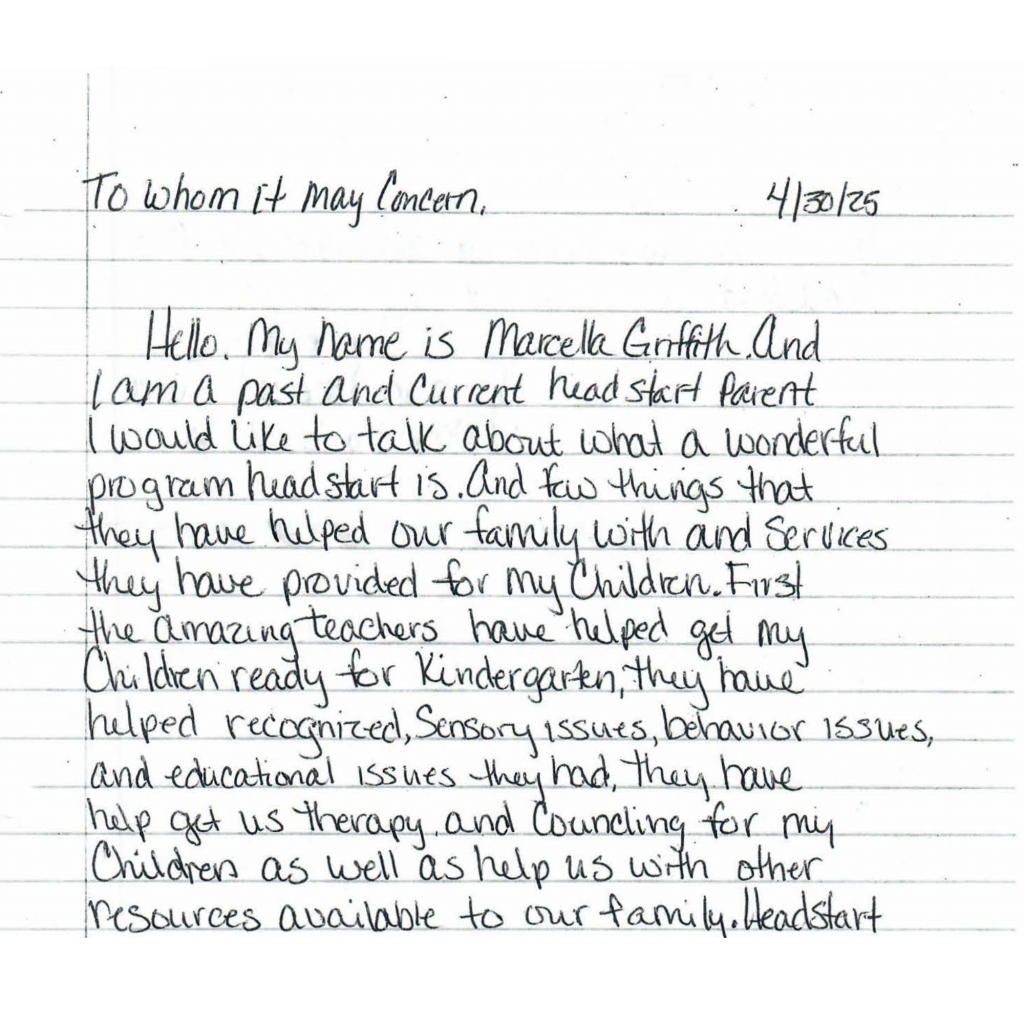 To whom it may Concern, 4/30/25
Hello. My name is Marcella Griffith. And
I am a past and current head start Parent
I would like to talk about what a wonderful
program head start is. And few things that
they have helped our family with and Services
they have provided for my Children. First
the amazing teachers have helped get my
Children ready for Kindergarten, they have
helped recognized, Sensory issues, behavior issues,
and educational issues they had, they have
help get us therapy, and Councling for my
Children as well as help us with other
resources available to our family. Headstart